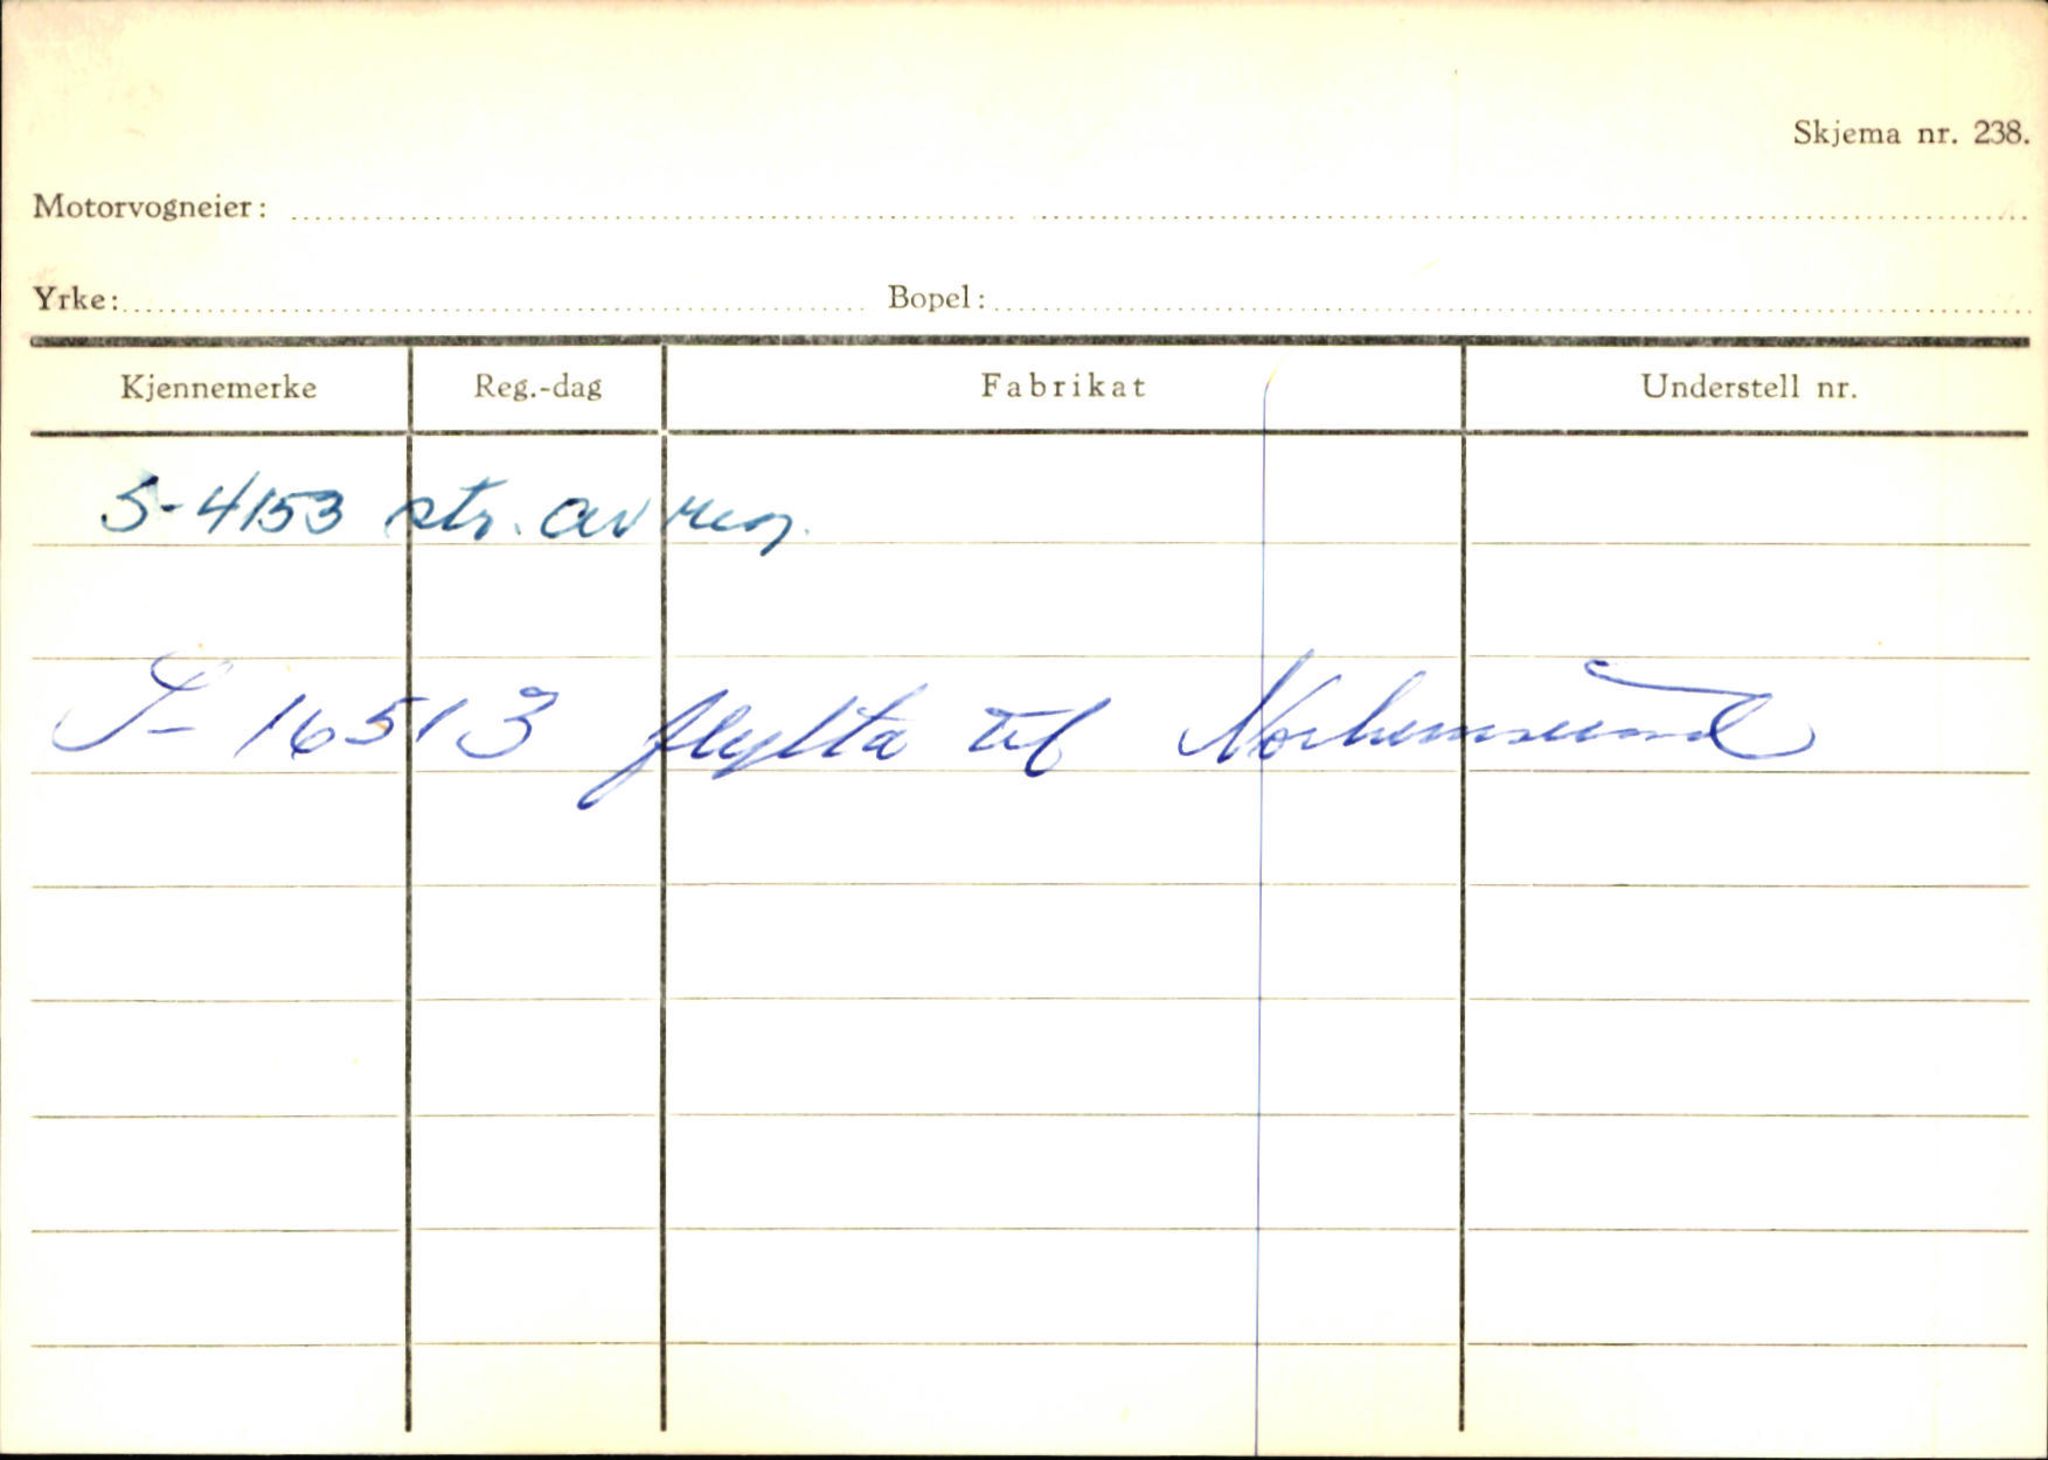 Skjema nr. 238.
Motorvogneier:
Yrke: Bopel:
Kjennemerke Reg.-dag Fabrikat Understell nr.
S-4153 str. av reg.
S- 16513 flytta til Norheimsund